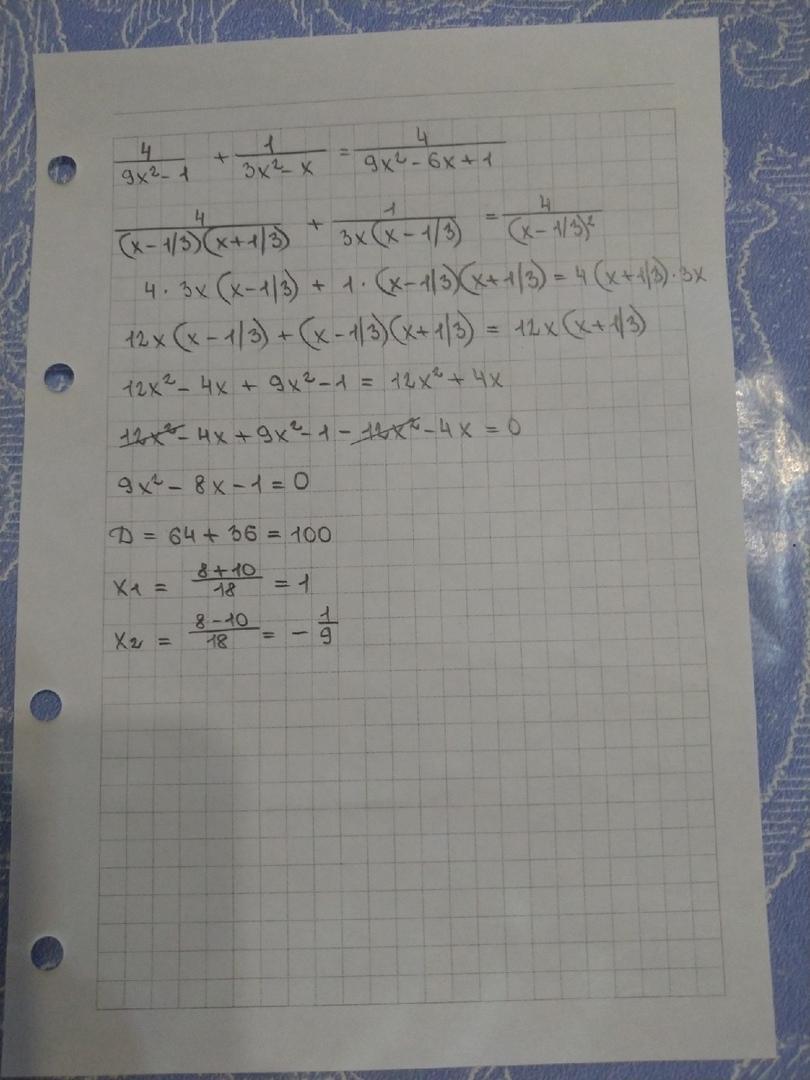 4/(9x²-1) + 1/(3x²-x) = 4/(9x²-6x+1)
4/((x-1/3)(x+1/3)) + 1/(3x(x-1/3)) = 4/(x-1/3)²
4·3x(x-1/3) + 1·(x-1/3)(x+1/3) = 4(x+1/3)·3x
12x(x-1/3) + (x-1/3)(x+1/3) = 12x(x+1/3)
12x² - 4x + 9x² - 1 = 12x² + 4x
12x² - 4x + 9x² - 1 - 12x² - 4x = 0
9x² - 8x - 1 = 0
D = 64 + 36 = 100
x1 = (8+10)/18 = 1
x2 = (8-10)/18 = -1/9